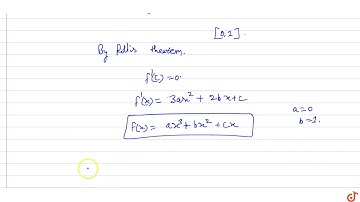 [0,1].
By Rolle's theorem.
f'(c)=0.
f'(x)= 3ax² + 2bx+c
f(x)= ax³+bx²+cx
a=0
b=1.